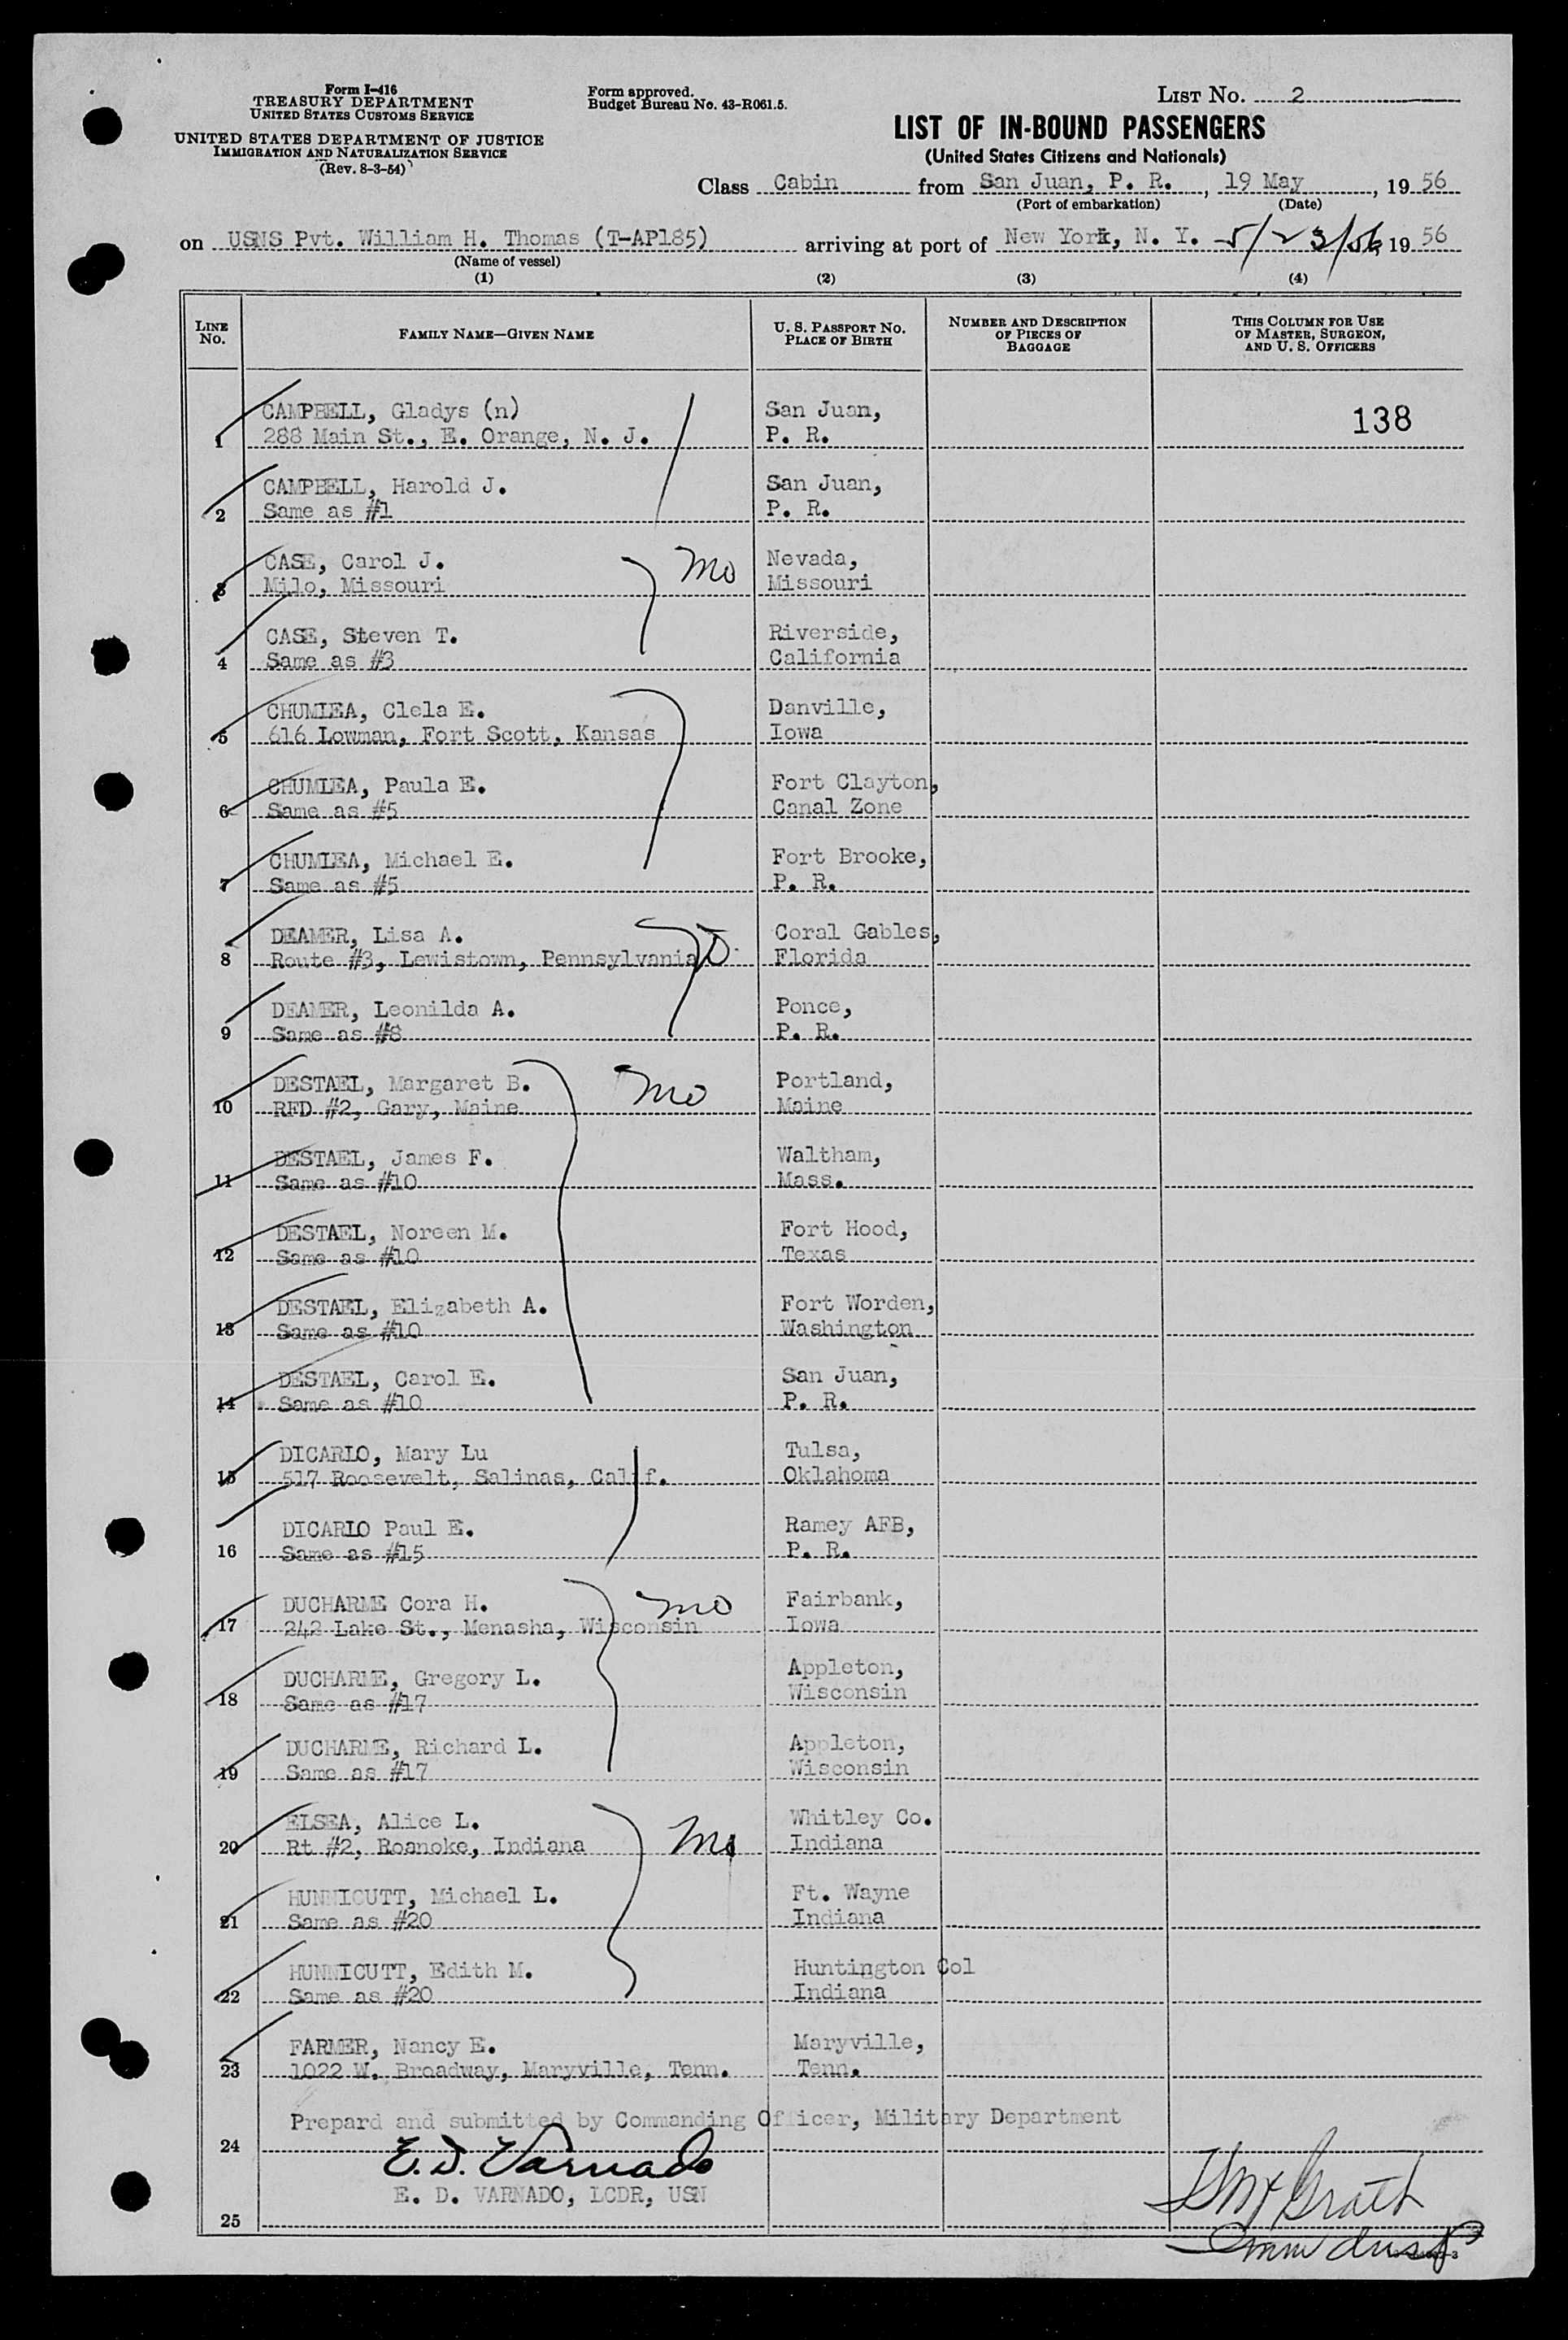 Form I-416
TREASURY DEPARTMENT
UNITED STATES CUSTOMS SERVICE
UNITED STATES DEPARTMENT OF JUSTICE
IMMIGRATION AND NATURALIZATION SERVICE
(Rev. 8-3-54)
Form approved.
Budget Bureau No. 43-R061.5.
LIST No. 2
LIST OF IN-BOUND PASSENGERS
(United States Citizens and Nationals)
Class Cabin from San Juan, P. R., 19 May, 19 56
(Port of embarkation) (Date)
on USNS Pvt. William H. Thomas (T-AP185) arriving at port of New York, N. Y. 5/23/56, 19 56
(Name of vessel)
(1) (2) (3) (4)
LINE No. FAMILY NAME—GIVEN NAME U. S. PASSPORT No. PLACE OF BIRTH NUMBER AND DESCRIPTION OF PIECES OF BAGGAGE THIS COLUMN FOR USE OF MASTER, SURGEON, AND U. S. OFFICERS
CAMPBELL, Gladys (n) San Juan, 138
1 288 Main St., E. Orange, N. J. P. R.
CAMPBELL, Harold J. San Juan,
2 Same as #1 P. R.
CASE, Carol J. Mo Nevada,
3 Milo, Missouri Missouri
CASE, Steven T. Riverside,
4 Same as #3 California
CHUMLEA, Clela E. Danville,
5 616 Lowman, Fort Scott, Kansas Iowa
CHUMLEA, Paula E. Fort Clayton,
6 Same as #5 Canal Zone
CHUMLEA, Michael E. Fort Brooke,
7 Same as #5 P. R.
DEAMER, Lisa A. Coral Gables,
8 Route #3, Lewistown, Pennsylvania Florida
DEAMER, Leonilda A. Ponce,
9 Same as #8 P. R.
DESTAEL, Margaret B. Mo Portland,
10 RFD #2, Gary, Maine Maine
DESTAEL, James F. Waltham,
11 Same as #10 Mass.
DESTAEL, Noreen M. Fort Hood,
12 Same as #10 Texas
DESTAEL, Elizabeth A. Fort Worden,
13 Same as #10 Washington
DESTAEL, Carol E. San Juan,
14 Same as #10 P. R.
DICARLO, Mary Lu Tulsa,
15 517 Roosevelt, Salinas, Calif. Oklahoma
DICARLO Paul E. Ramey AFB,
16 Same as #15 P. R.
DUCHARME Cora H. Mo Fairbank,
17 242 Lake St., Menasha, Wisconsin Iowa
DUCHARME, Gregory L. Appleton,
18 Same as #17 Wisconsin
DUCHARME, Richard L. Appleton,
19 Same as #17 Wisconsin
ELSEA, Alice L. Mo Whitley Co.
20 Rt #2, Roanoke, Indiana Indiana
HUNNICUTT, Michael L. Ft. Wayne
21 Same as #20 Indiana
HUNNICUTT, Edith M. Huntington Col
22 Same as #20 Indiana
FARMER, Nancy E. Maryville,
23 1022 W. Broadway, Maryville, Tenn. Tenn.
Prepard and submitted by Commanding Officer, Military Department
24 E. D. Varnado
E. D. VARNADO, LCDR, USN
25